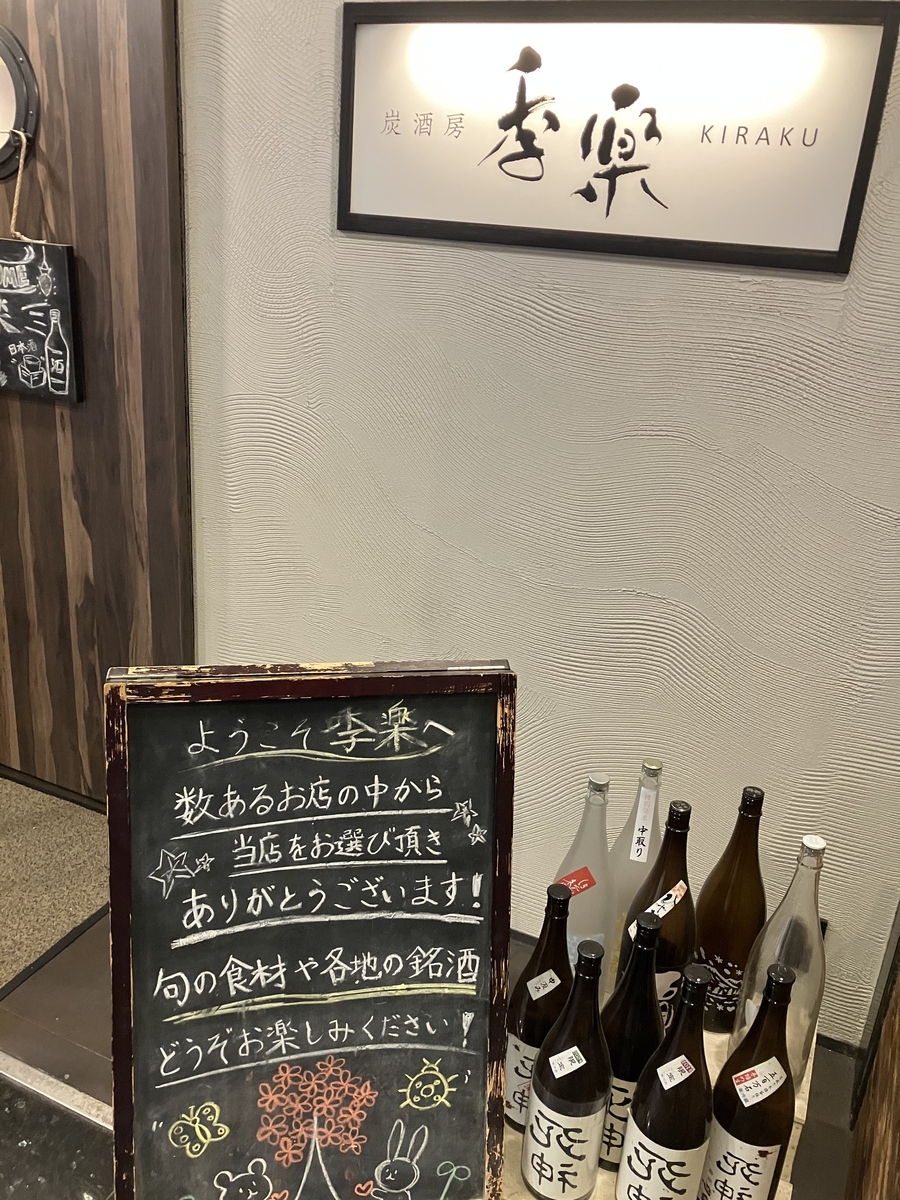 炭酒房 季楽 KIRAKU
日本酒
酒
ようこそ 季楽へ
数あるお店の中から
当店をお選び頂き
ありがとうございます!
旬の食材や各地の銘酒
どうぞお楽しみください!
中取り
死神
死神
死神
五百万石